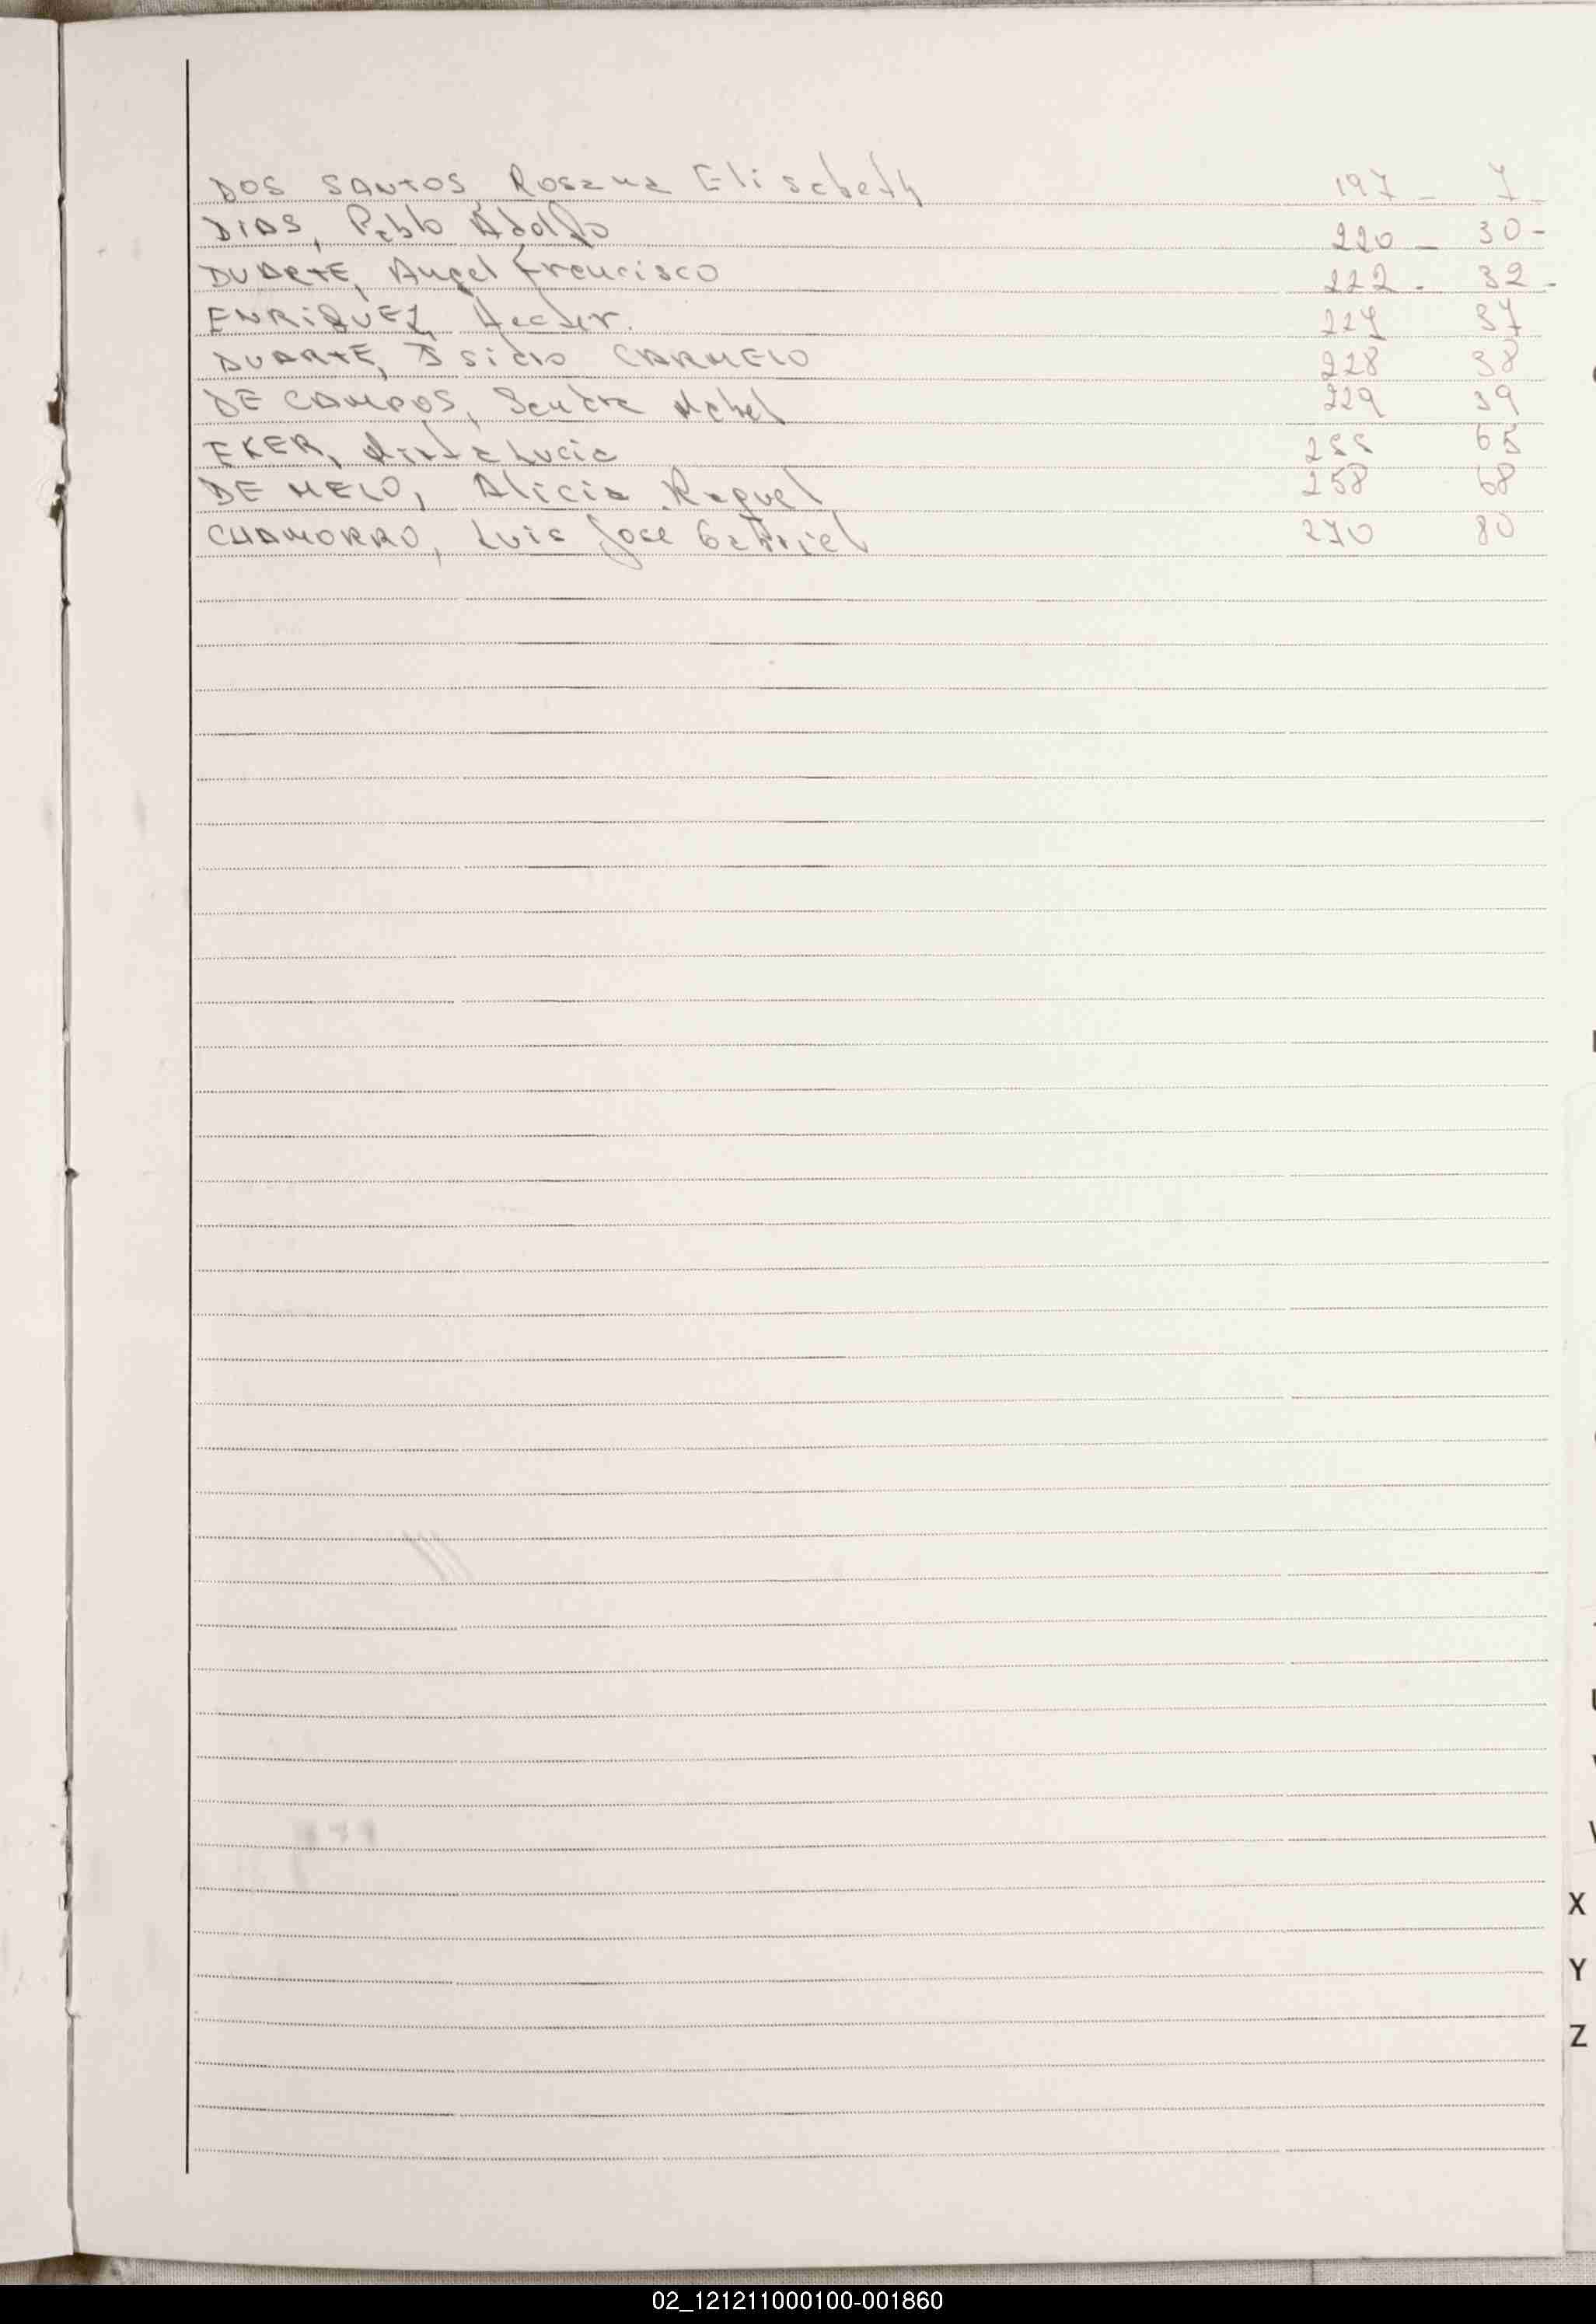 DOS SANTOS, Rosana Elisabeth 197 - 7 -
DIAS, Pablo Adolfo 220 - 30 -
DUARTE, Angel Francisco 222 - 32 -
ENRIQUEZ, Hector. 227 37
DUARTE, Isidro CARMELO 228 38
DE CAMPOS, Sandra Mabel 229 39
EKER, Mirta Lucia 255 65
DE MELO, Alicia Raquel 258 68
CHAMORRO, Luis Jose Gabriel 270 80
X
Y
Z
02_121211000100-001860